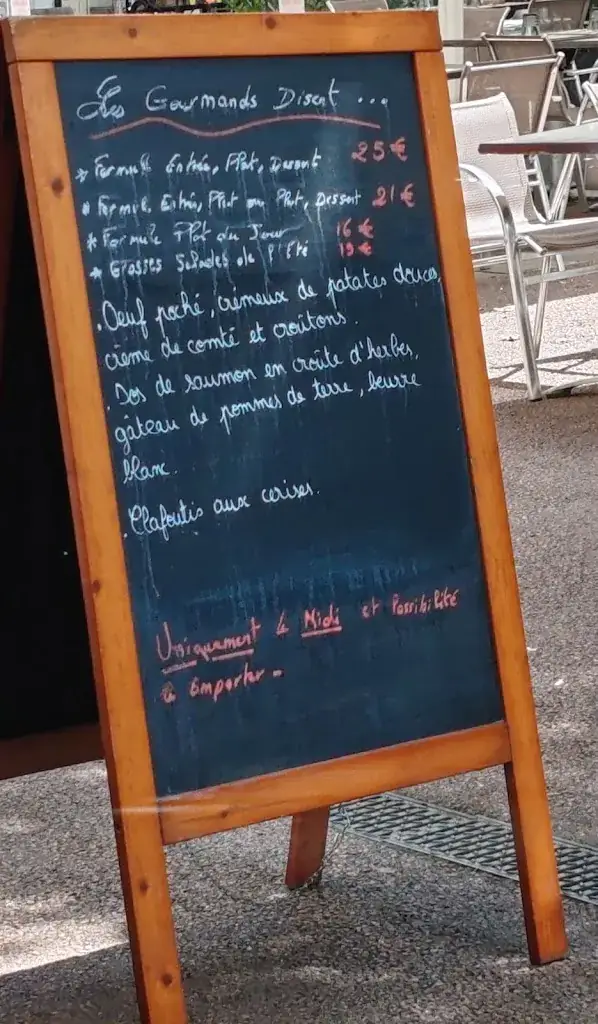 Les Gourmands Disent ...
* Formule Entrée, Plat, Dessert 25€
* Formule, Entrée, Plat ou Plat, Dessert 21€
* Formule Plat du Jour 16€
* Grosses Salades de l'Été 19€
. Oeuf poché, crémeux de patates douces,
crème de comté et croûtons.
. Dos de saumon en croûte d'herbes,
gâteau de pommes de terre, beurre
blanc.
. Clafoutis aux cerises.
Uniquement à Midi et Possibilité
à Emporter -